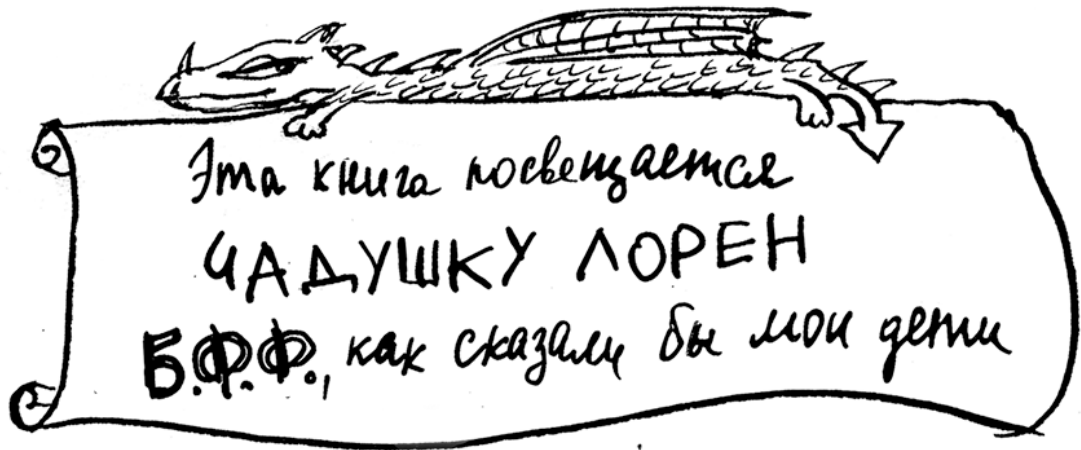 Эта книга посвещается
ЧАДУШКУ ЛОРЕН
Б.Ф.Ф., как сказали бы мои дети